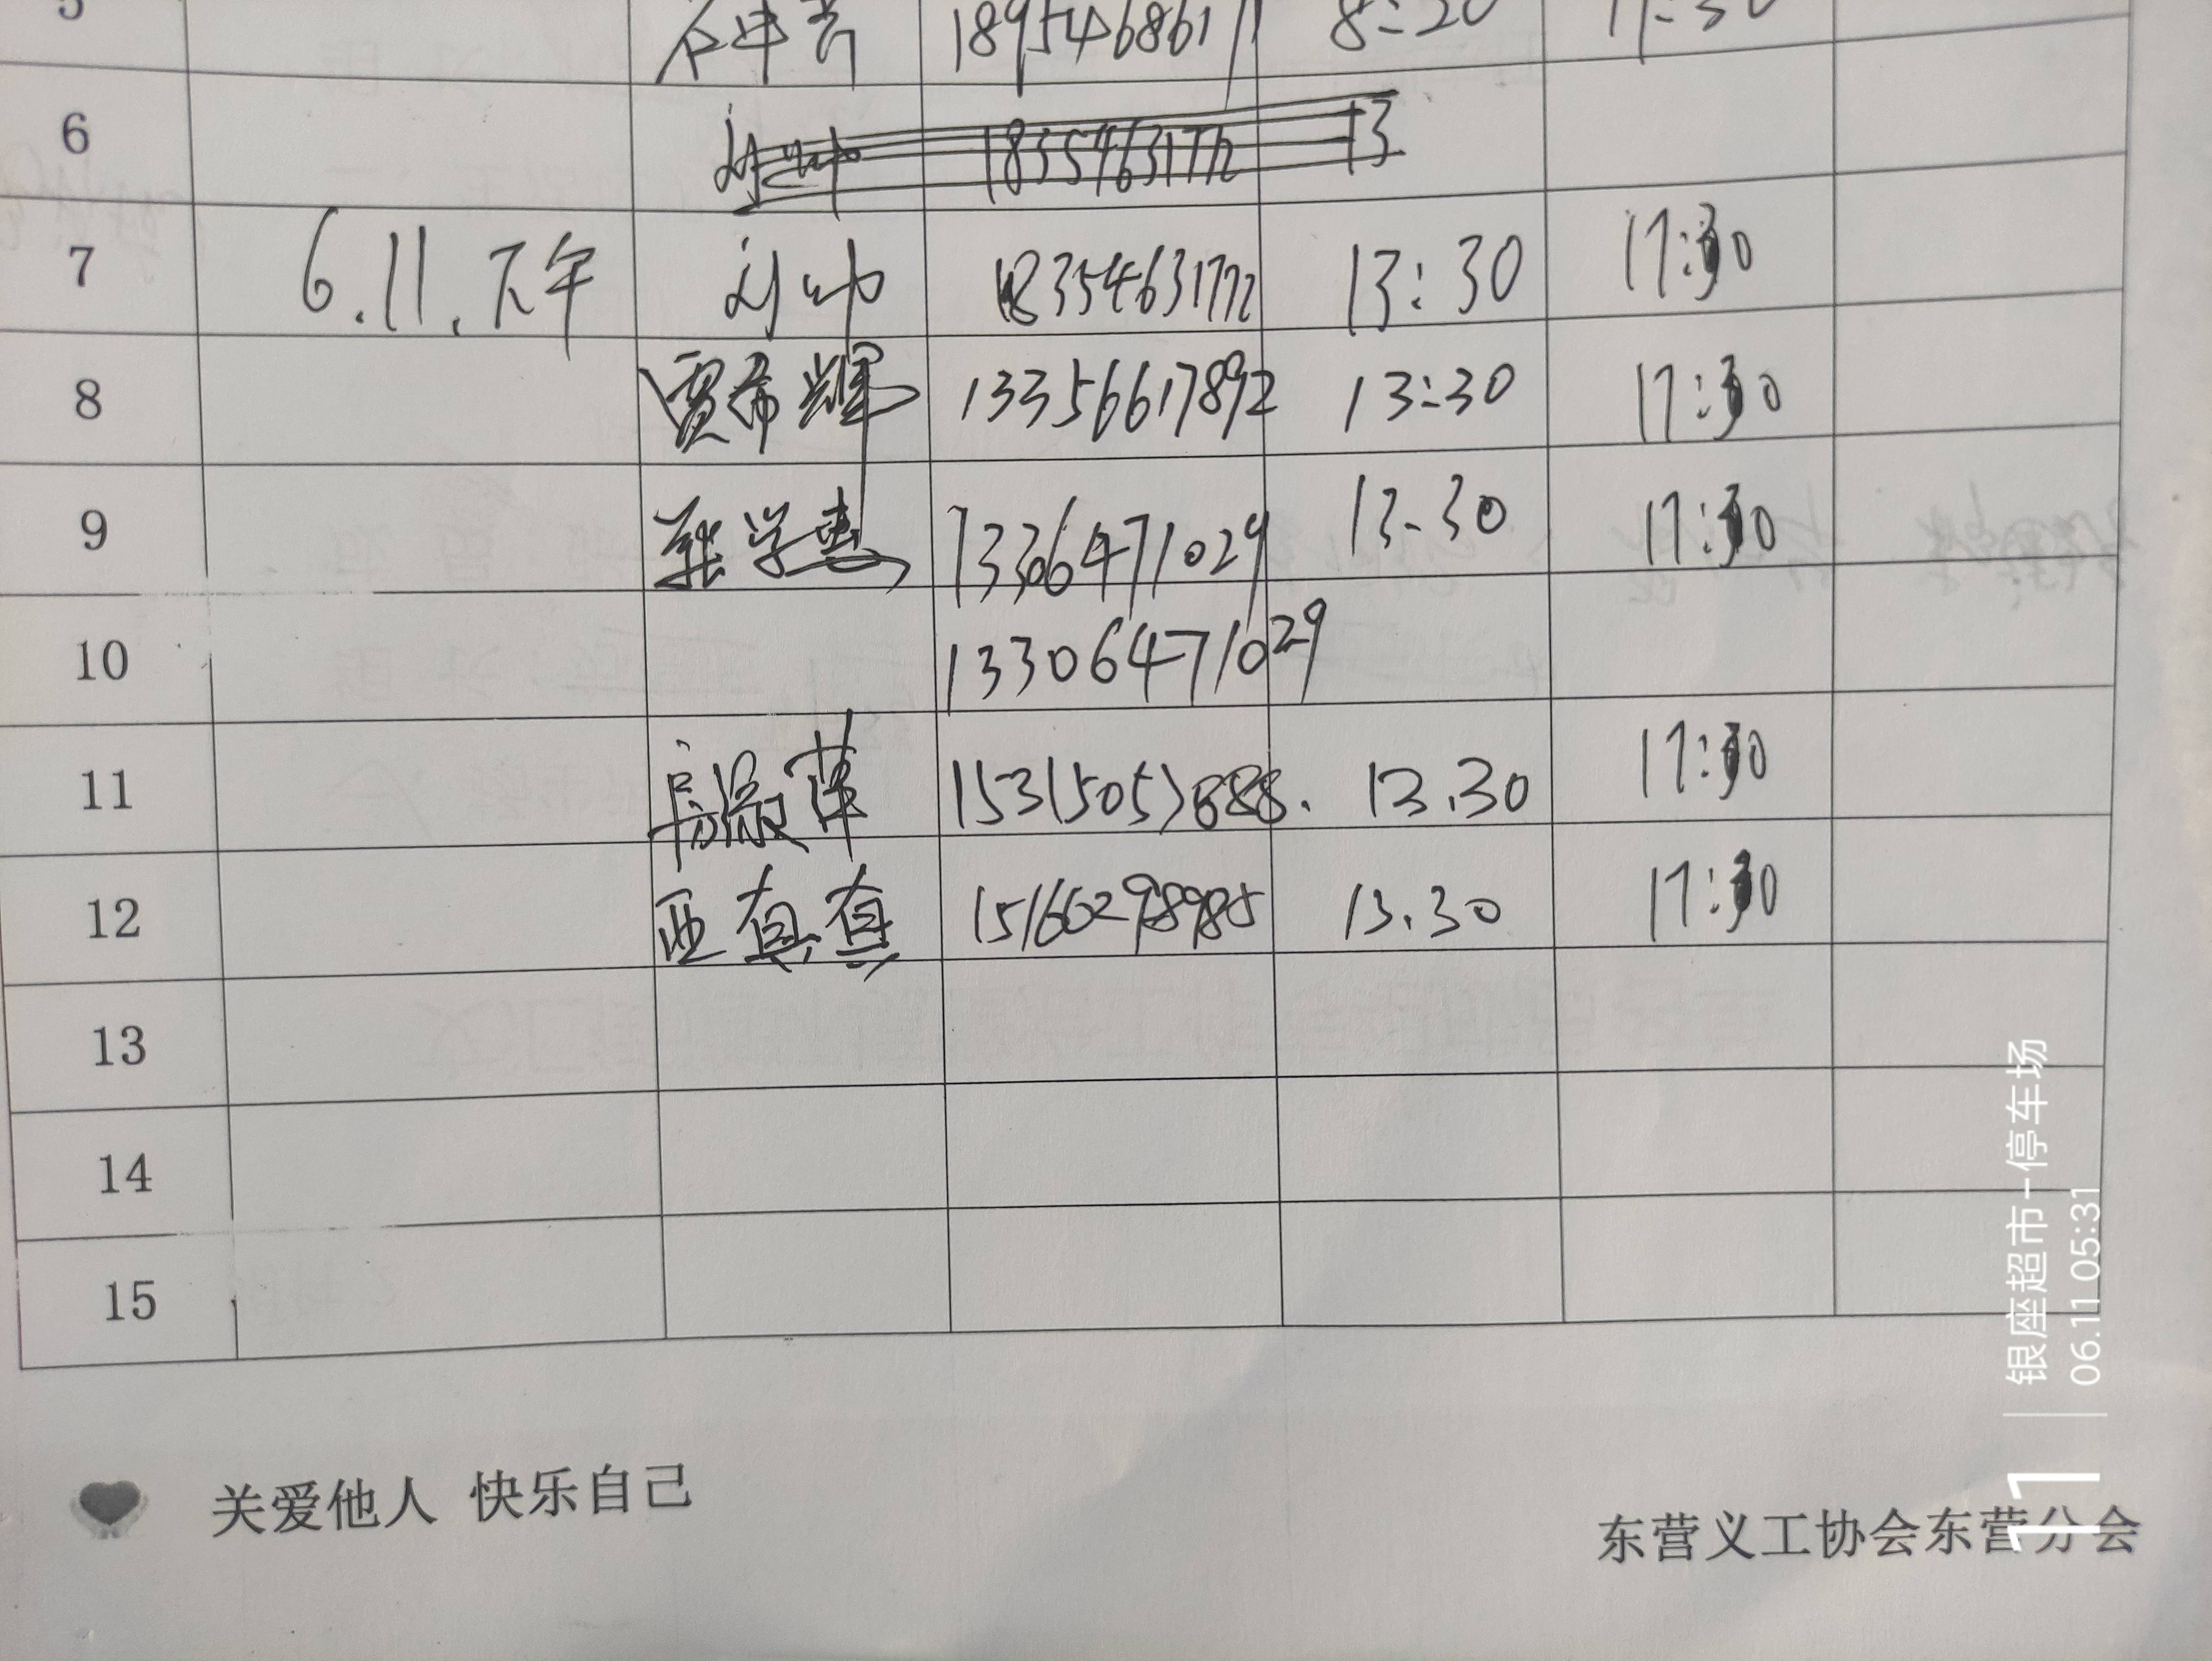 5 18954686171 8:20 11:30
6 18354631772 13
7 6.11.下午 刘帅 18354631772 13:30 17:30
8 贾希辉 13356617892 13:30 17:30
9 张学惠 13306471029 13.30 17:30
10 13306471029
11 房淑苹 15315053688. 13.30 17:30
12 亚真真 15166298985 13.30 17:30
13
14
15
关爱他人 快乐自己
东营义工协会东营分会
11
银座超市-停车场
06.11 05:31